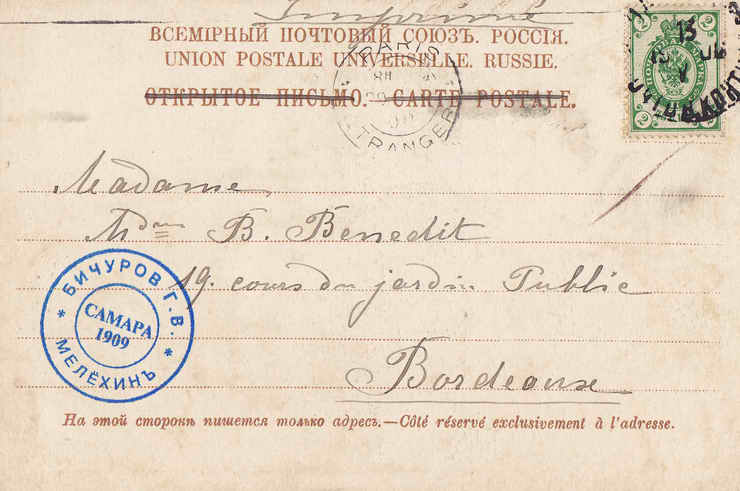 Imprimé
ВСЕМІРНЫЙ ПОЧТОВЫЙ СОЮЗЪ. РОССІЯ.
UNION POSTALE UNIVERSELLE. RUSSIE.
ОТКРЫТОЕ ПИСЬМО.—CARTE POSTALE.
PARIS
ETRANGER
2
2
2
13
Madame
Mdme B. Benedit
19. cours du jardin Public
Bordeaux
БИЧУРОВ Г. В.
САМАРА
1909
МЕЛЁХИНЪ
На этой сторонѣ пишется только адресъ.—Côté réservé exclusivement à l'adresse.